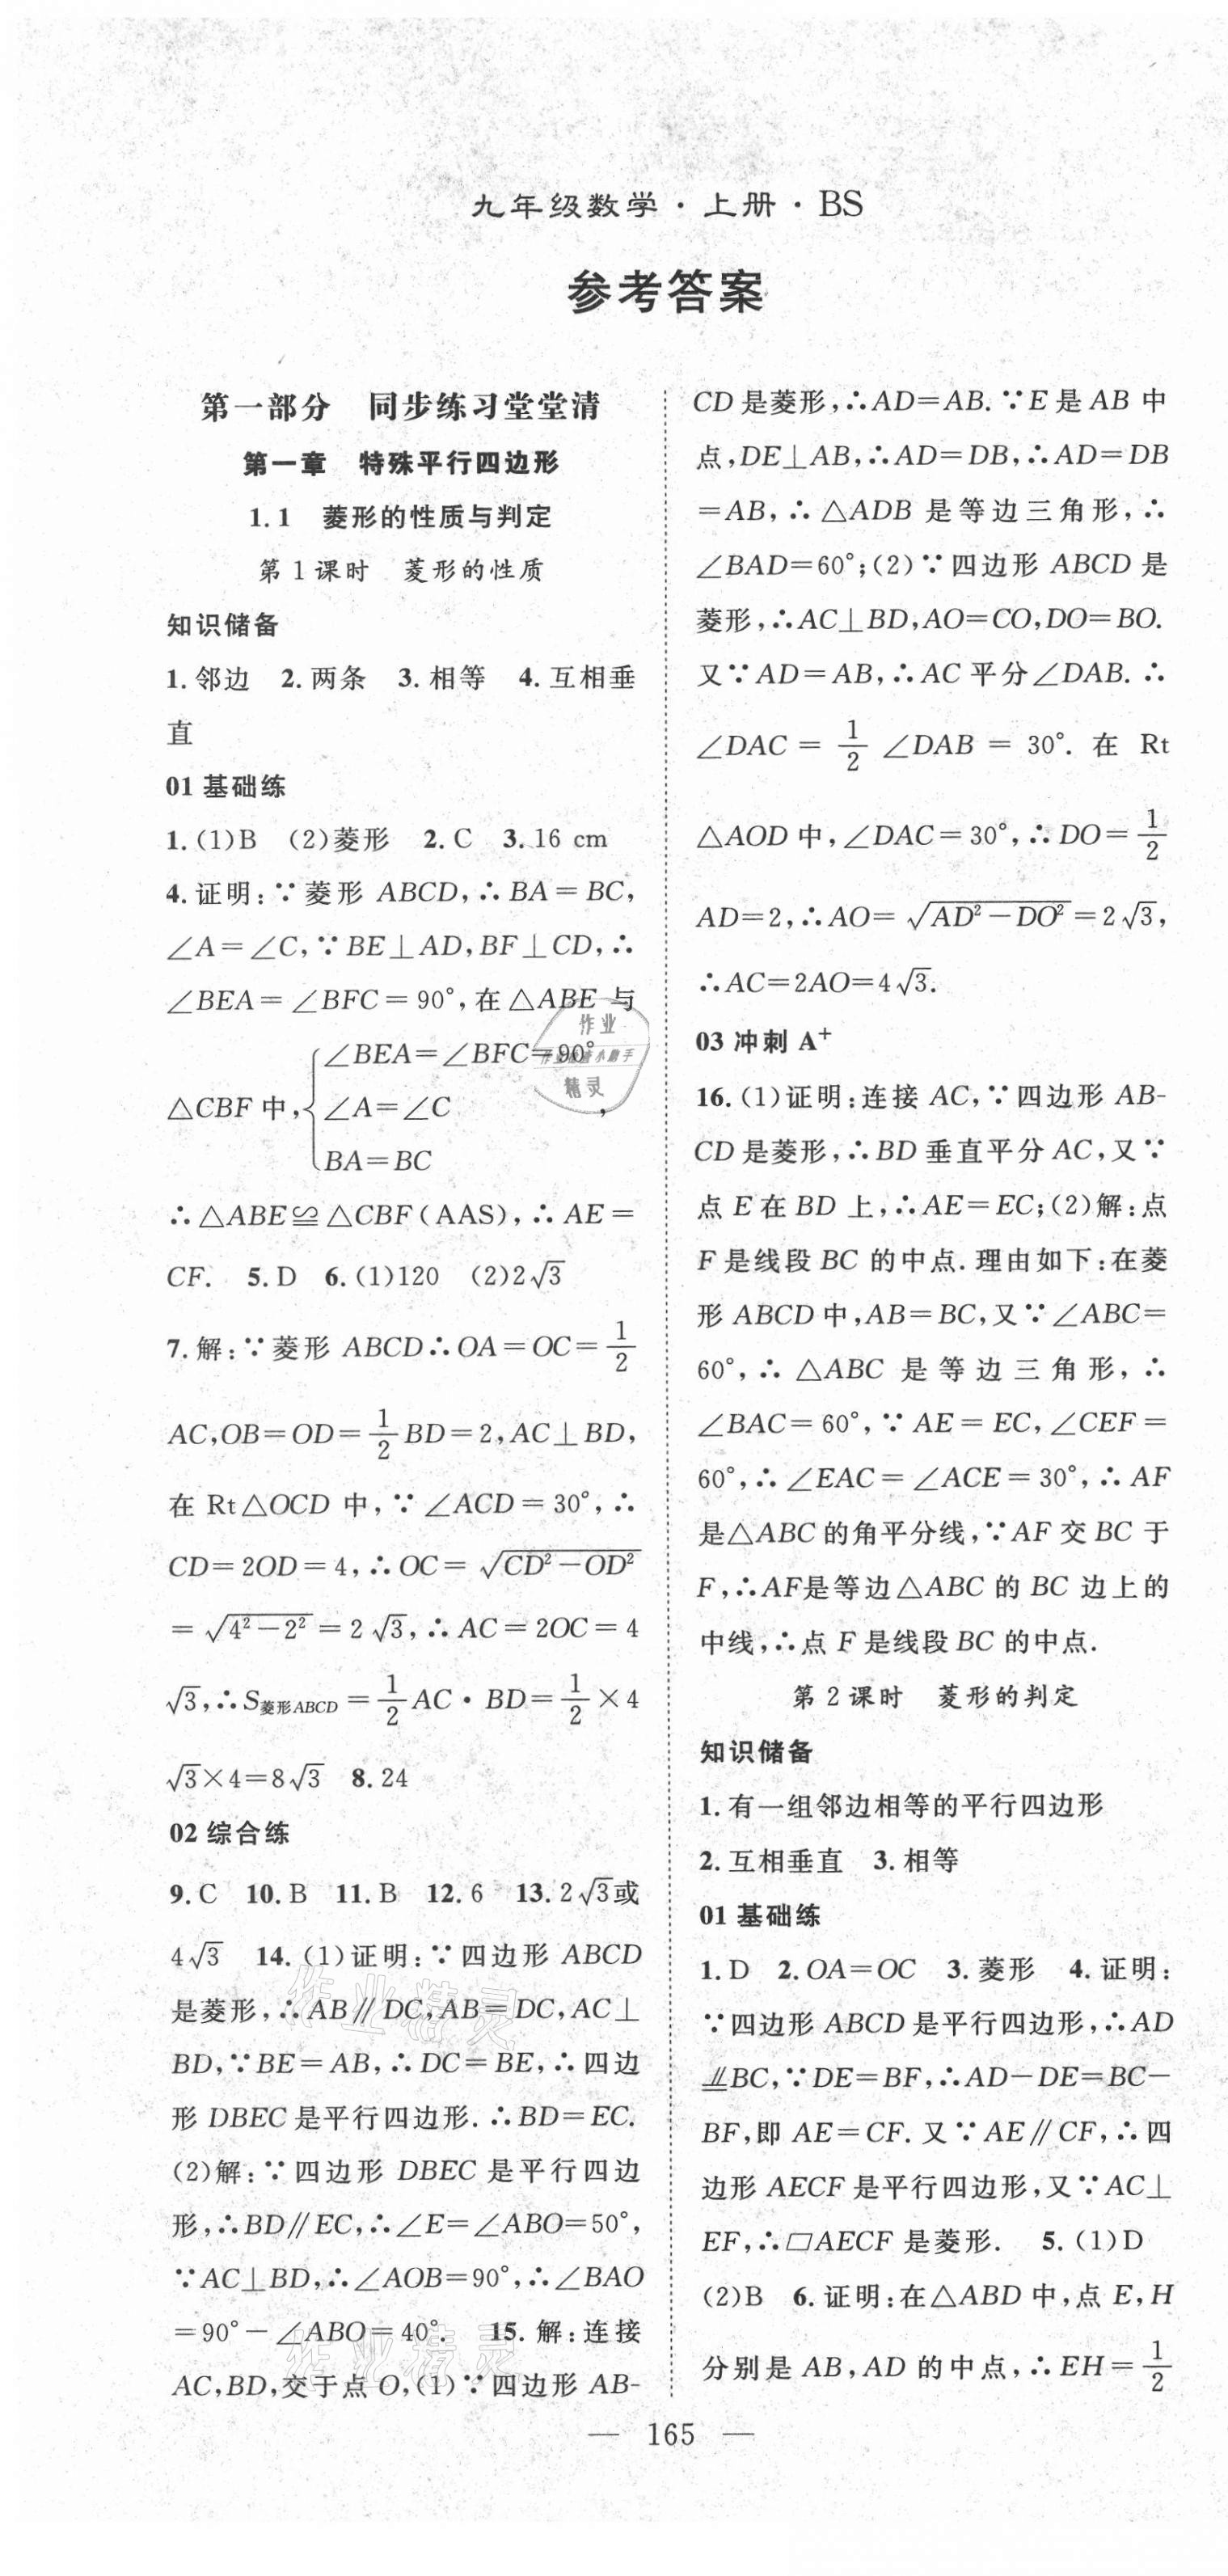 九年级数学·上册·BS
参考答案
第一部分 同步练习堂堂清
第一章 特殊平行四边形
1.1 菱形的性质与判定
第1课时 菱形的性质
知识储备
1.邻边 2.两条 3.相等 4.互相垂
直
01 基础练
1.(1)B (2)菱形 2.C 3.16 cm
4.证明:∵菱形 ABCD,∴BA=BC,
∠A=∠C,∵BE⊥AD,BF⊥CD,∴
∠BEA=∠BFC=90°,在△ABE 与
△CBF 中,{∠BEA=∠BFC=90°
∠A=∠C ,
BA=BC
∴△ABE≌△CBF(AAS),∴AE=
CF. 5.D 6.(1)120 (2)2√3
7.解:∵菱形 ABCD∴OA=OC=1/2
AC,OB=OD=1/2BD=2,AC⊥BD,
在 Rt△OCD 中,∵∠ACD=30°,∴
CD=2OD=4,∴OC=√(CD²-OD²)
=√(4²-2²)=2√3,∴AC=2OC=4
√3,∴S菱形ABCD=1/2AC·BD=1/2×4
√3×4=8√3 8.24
02 综合练
9.C 10.B 11.B 12.6 13.2√3或
4√3 14.(1)证明:∵四边形 ABCD
是菱形,∴AB∥DC,AB=DC,AC⊥
BD,∵BE=AB,∴DC=BE,∴四边
形 DBEC是平行四边形.∴BD=EC.
(2)解:∵四边形 DBEC 是平行四边
形,∴BD∥EC,∴∠E=∠ABO=50°,
∵AC⊥BD,∴∠AOB=90°,∴∠BAO
=90°-∠ABO=40°. 15.解:连接
AC,BD,交于点 O,(1)∵四边形 AB-
CD 是菱形,∴AD=AB.∵E 是 AB 中
点,DE⊥AB,∴AD=DB,∴AD=DB
=AB,∴△ADB 是等边三角形,∴
∠BAD=60°;(2)∵四边形 ABCD 是
菱形,∴AC⊥BD,AO=CO,DO=BO.
又∵AD=AB,∴AC 平分∠DAB.∴
∠DAC=1/2∠DAB=30°.在 Rt
△AOD 中,∠DAC=30°,∴DO=1/2
AD=2,∴AO=√(AD²-DO²)=2√3,
∴AC=2AO=4√3.
03 冲刺 A⁺
16.(1)证明:连接 AC,∵四边形 AB-
CD 是菱形,∴BD 垂直平分 AC,又∵
点 E 在 BD 上,∴AE=EC;(2)解:点
F 是线段 BC 的中点.理由如下:在菱
形 ABCD 中,AB=BC,又∵∠ABC=
60°,∴△ABC 是等边三角形,∴
∠BAC=60°,∵AE=EC,∠CEF=
60°,∴∠EAC=∠ACE=30°,∴AF
是△ABC的角平分线,∵AF 交 BC 于
F,∴AF是等边△ABC 的 BC 边上的
中线,∴点 F 是线段 BC 的中点.
第2课时 菱形的判定
知识储备
1.有一组邻边相等的平行四边形
2.互相垂直 3.相等
01 基础练
1.D 2.OA=OC 3.菱形 4.证明:
∵四边形 ABCD 是平行四边形,∴AD
⫫BC,∵DE=BF,∴AD-DE=BC-
BF,即 AE=CF.又∵AE∥CF,∴四
边形 AECF 是平行四边形,又∵AC⊥
EF,∴▱AECF 是菱形. 5.(1)D
(2)B 6.证明:在△ABD 中,点 E,H
分别是 AB,AD 的中点,∴EH=1/2
— 165 —
作业
作业检查小助手
精灵
作业精灵
作业精灵